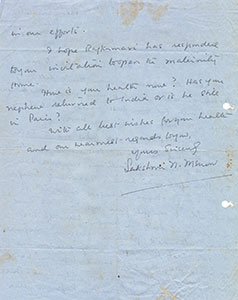 in our efforts.
I hope Rajkumari has responded
to your invitation to open the maternity
home.
How is your health now? Has your
nephew returned to India or is he still
in Paris?
With all best wishes for your health
and our warmest regards to you,
Yours Sincerely
Lakshmi N. Menon